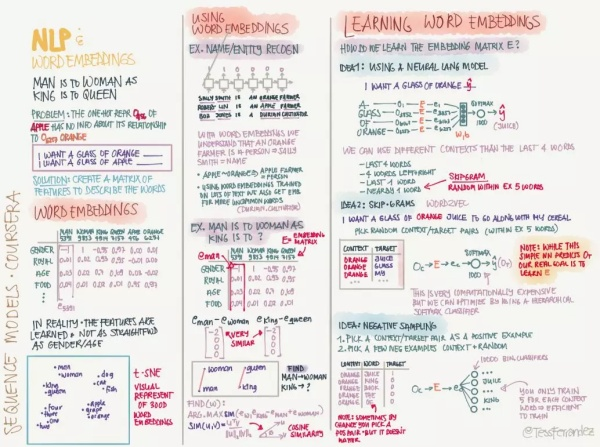 SEQUENCE MODELS: COURSERA
NLP &
WORD EMBEDDINGS
MAN IS TO WOMAN AS
KING IS TO QUEEN
PROBLEM: THE ONE-HOT REPR.
APPLE HAS NO INFO ABOUT ITS RELATIONSHIP
TO ORANGE
I WANT A GLASS OF ORANGE
I WANT A GLASS OF APPLE
SOLUTION: CREATE A MATRIX OF
FEATURES TO DESCRIBE THE WORDS
WORD EMBEDDINGS
MAN WOMAN KING QUEEN APPLE ORANGE
5391 9853 4914 7157 456 6257
GENDER -1 1 -0.95 0.97
ROYAL 0.01 0.02
AGE
FOOD
e5391
IN REALITY THE FEATURES ARE
LEARNED & NOT AS STRAIGHTFWD
AS GENDER/AGE
man
woman
dog
cat
fish
king
queen
four
three
one
two
apple
grape
orange
t-SNE
VISUAL
REPRESENT
OF 300D
WORD
EMBEDDINGS
USING
WORD EMBEDDINGS
EX. NAME/ENTITY RECOGN
1 1 0 0 0 0
SALLY SMITH IS AN ORANGE FARMER
ROBERT LIN IS AN APPLE FARMER
BOB JONES IS A DURIAN CULTIVATOR
WITH WORD EMBEDDINGS WE
UNDERSTAND THAT AN ORANGE
FARMER IS A PERSON → SALLY
SMITH = NAME
APPLE ~ ORANGE → APPLE FARMER
= PERSON
USING WORD EMBEDDINGS TRAINED
ON LOTS OF TEXT WE ALSO GET EMB
FOR MORE UNCOMMON WORDS
(DURIAN, CULTIVATOR)
EX. MAN IS TO WOMAN AS
KING IS TO ?
E = EMBEDDING
MATRIX
eman
MAN WOMAN KING QUEEN
5391 9853 4914 7157
GENDER -1 1 -0.95 0.97
ROYAL
AGE
FOOD
eman - ewoman
eking - equeen
VERY
SIMILAR
woman
man
queen
king
FIND:
MAN→WOMAN
KING→?
FIND(w):
ARG MAX SIM(ew, eking - eman + ewoman)
SIM(u,v) =
COSINE
SIMILARITY
LEARNING WORD EMBEDDINGS
HOW DO WE LEARN THE EMBEDDING MATRIX E?
IDEA 1: USING A NEURAL LANG MODEL
I WANT A GLASS OF ORANGE ŷ
A
GLASS
OF
ORANGE
SOFTMAX
ŷ
(JUICE)
WE CAN USE DIFFERENT CONTEXTS THAN THE LAST 4 WORDS
- LAST 4 WORDS
- 4 WORDS LEFT+RIGHT
- LAST 1 WORD
- NEARBY 1 WORD
SKIPGRAM
RANDOM WITHIN EX 5 WORDS
IDEA 2: SKIP-GRAMS WORD2VEC
I WANT A GLASS OF ORANGE JUICE TO GO ALONG WITH MY CEREAL
PICK RANDOM CONTEXT/TARGET PAIRS (WITHIN EX 5 WORDS)
CONTEXT TARGET
ORANGE JUICE
ORANGE GLASS
ORANGE MY
SOFTMAX
NOTE: WHILE THIS
SIMPLE NN PREDICTS
OUR REAL GOAL IS TO
LEARN E
THIS IS VERY COMPUTATIONALLY EXPENSIVE
BUT WE CAN OPTIMIZE BY USING A HIERARCHICAL
SOFTMAX CLASSIFIER
IDEA: NEGATIVE SAMPLING
1. PICK A CONTEXT/TARGET PAIR AS A POSITIVE EXAMPLE
2. PICK A FEW NEG EXAMPLES CONTEXT + RANDOM
CONTEXT WORD TARGET
ORANGE JUICE 1
ORANGE KING 0
ORANGE BOOK 0
ORANGE THE 0
ORANGE OF 0
JUICE
KING
NOTE: SOMETIMES BY
CHANCE YOU PICK A
POS PAIR - BUT IT DOESN'T
MATTER
YOU ONLY TRAIN
5 FOR EACH CONTEXT
WORD → EFFICIENT TO
TRAIN
@TessFerrandez